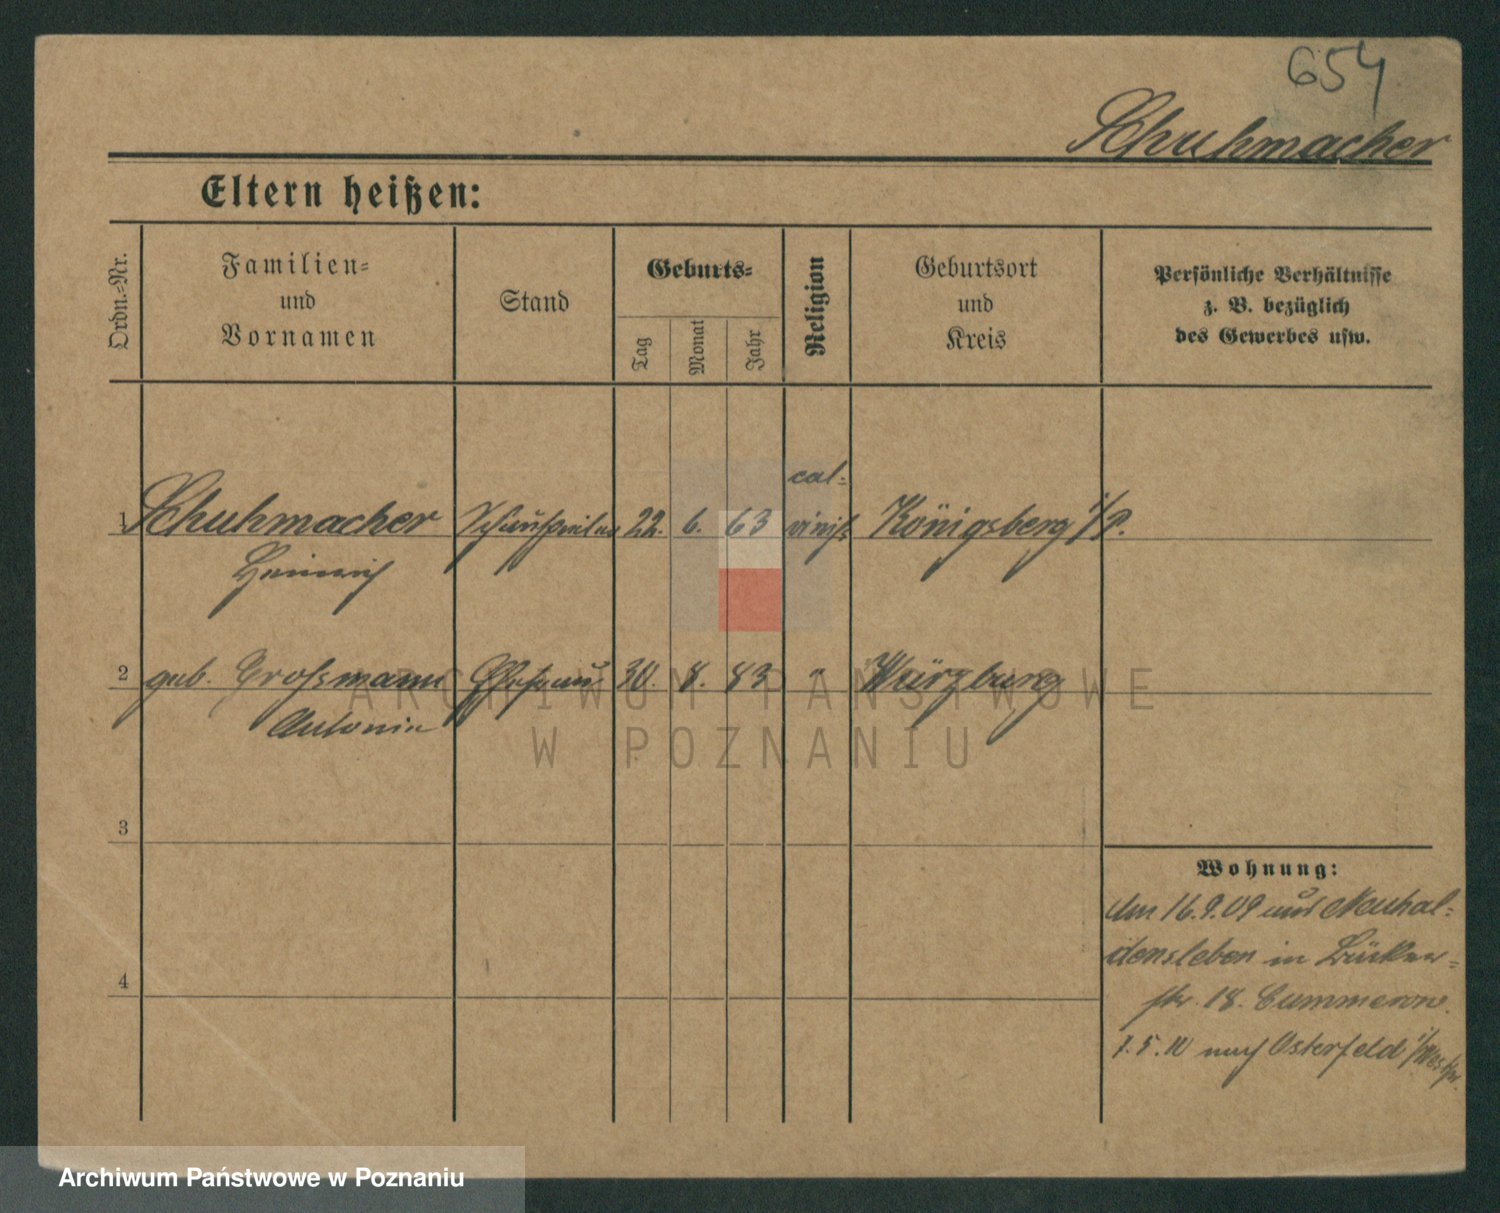 654
Schuhmacher
Eltern heißen:
Ordn.-Nr.
Familien-
und
Vornamen
Stand
Geburts-
Tag
Monat
Jahr
Religion
Geburtsort
und
Kreis
Persönliche Verhältnisse
z. B. bezüglich
des Gewerbes usw.
cal-
1 Schuhmacher Schauspieler 22. 6. 63 vinist Königsberg i/P.
Heinrich
2 geb. Großmann Ehefrau 30. 8. 83 " Würzburg
Antonie
ARCHIWUM PAŃSTWOWE
W POZNANIU
3
Wohnung:
Am 16.9.09 aus Neuhal-
densleben in
4
str. 18. Cummerow.
7.5.10 nach Osterfeld i/Westf.
Archiwum Państwowe w Poznaniu